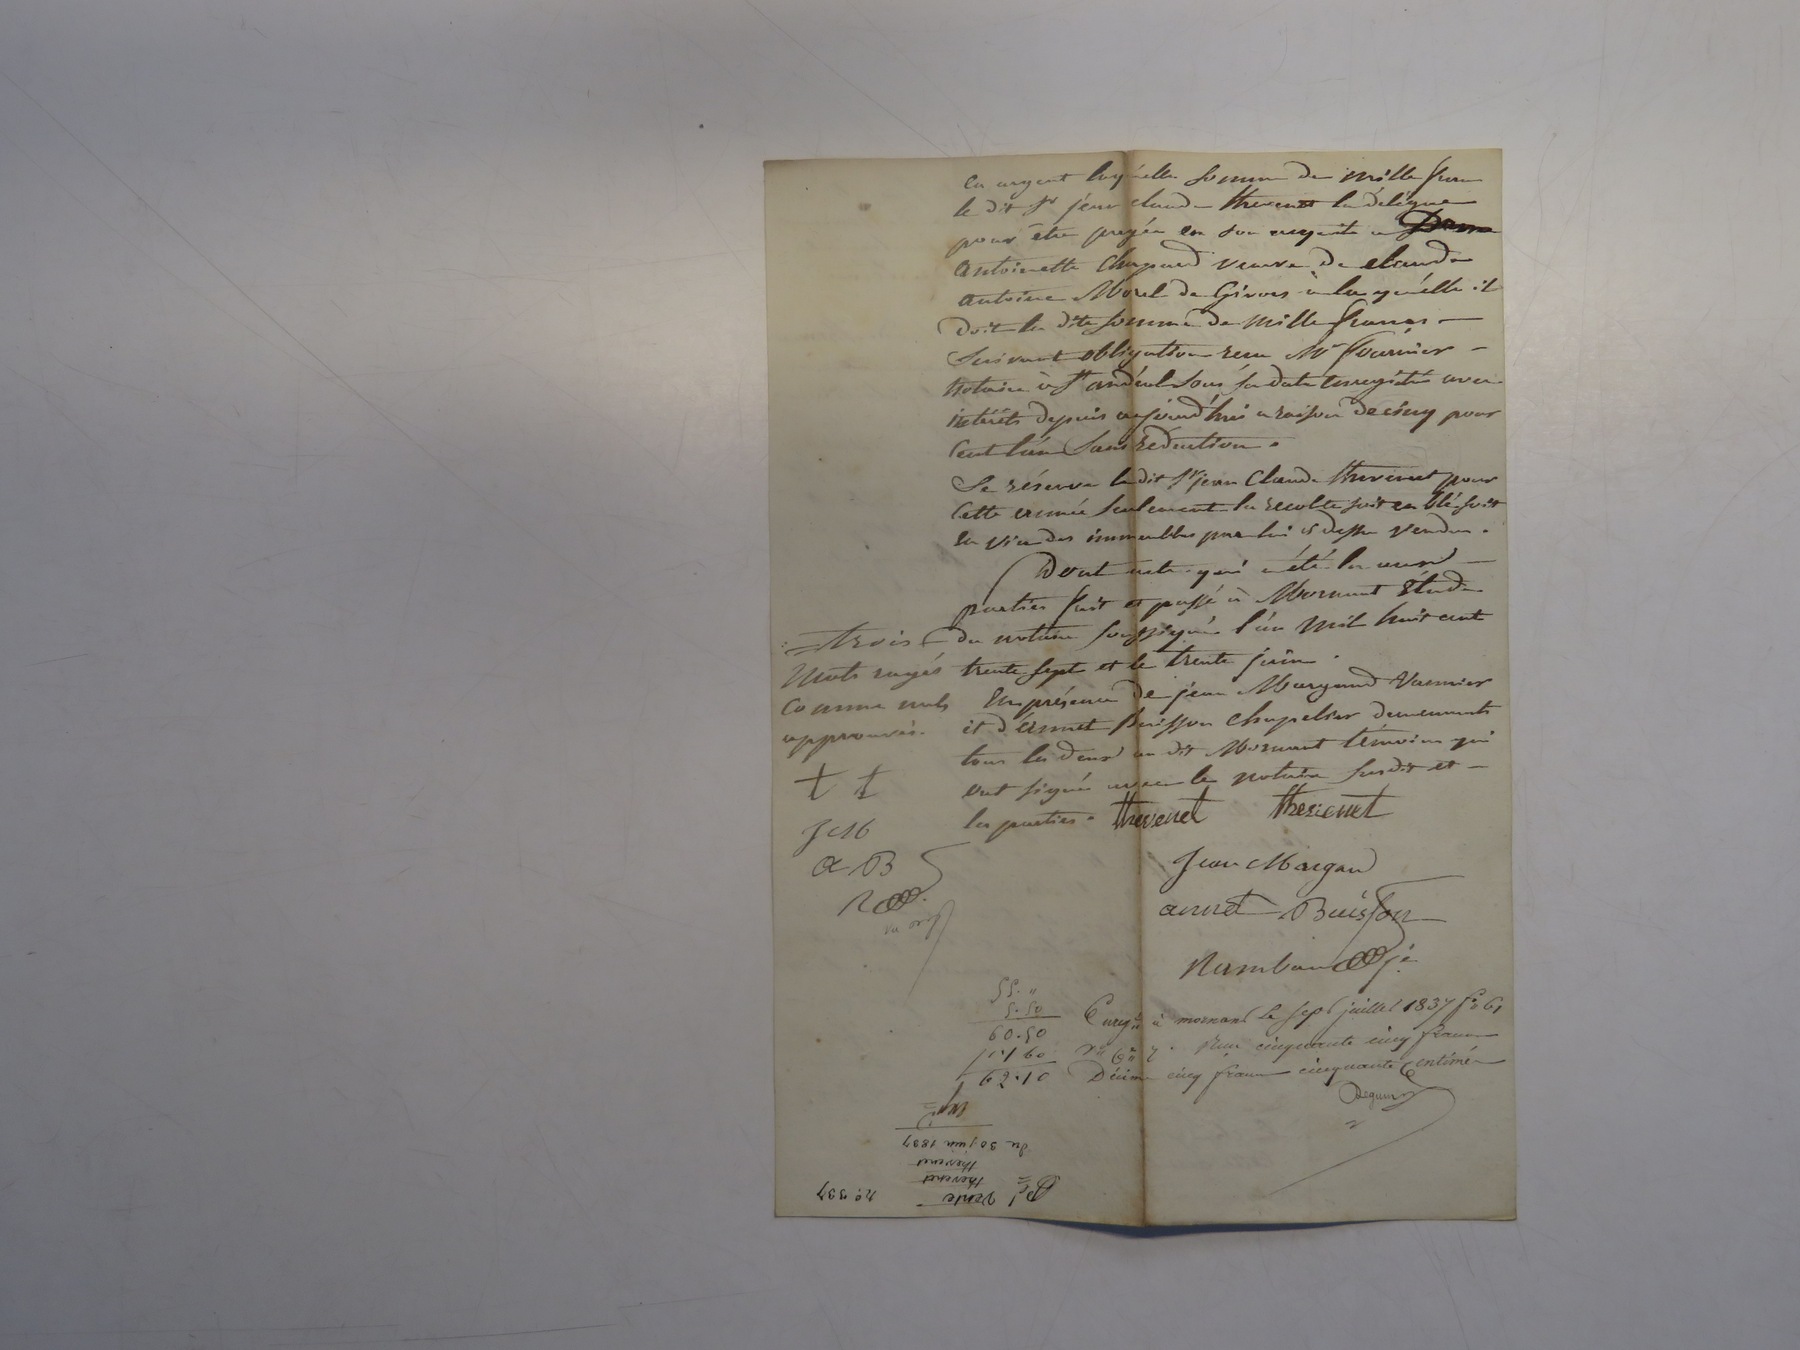 en argent laquelle somme de mille francs
le dit Sr jean claude thevenet la délégue
pour être payée en son acquit à
Antoinette Chapard veuve de claude
antoine Morel de Givors à laquelle il
doit la dite somme de mille francs
Suivant obligation reçu Me fournier
Notaire à St andéol sous sa date enregistré avec
intérêts depuis aujourd'hui a raison de cinq pour
Cent l'an Sans réduction.
Se réserve le dit Sr jean Claude thevenet pour
Cette année seulement la recolte soit en blé soit
en vin des immeubles par lui ci dessus vendus.
Dont acte qui a été lu aux
parties fait et passé à Mornant Etude
du notaire soussigné l'an Mil huit cent
trente sept et le trente juin.
En présence de jean Margand
et d'annet Buisson chapelier demeurants
tous les deux au dit Mornant témoins qui
ont signé avec le notaire susdit et
les parties. thevenet thevenet
trois
Mots rayés
Comme nuls
approuvés.
t t
J M
a B
R
Jean Margan
annet Buisson
55. "
5.50
60.50
1.60
62.10
Enregé à mornant le sept juillet 1837 fo 61
Ro Ce 7. Reçu cinquante cinq francs
Décime cinq francs cinquante Centimes
No 337
Vente
thevenet
thevenet
du 30 juin 1837